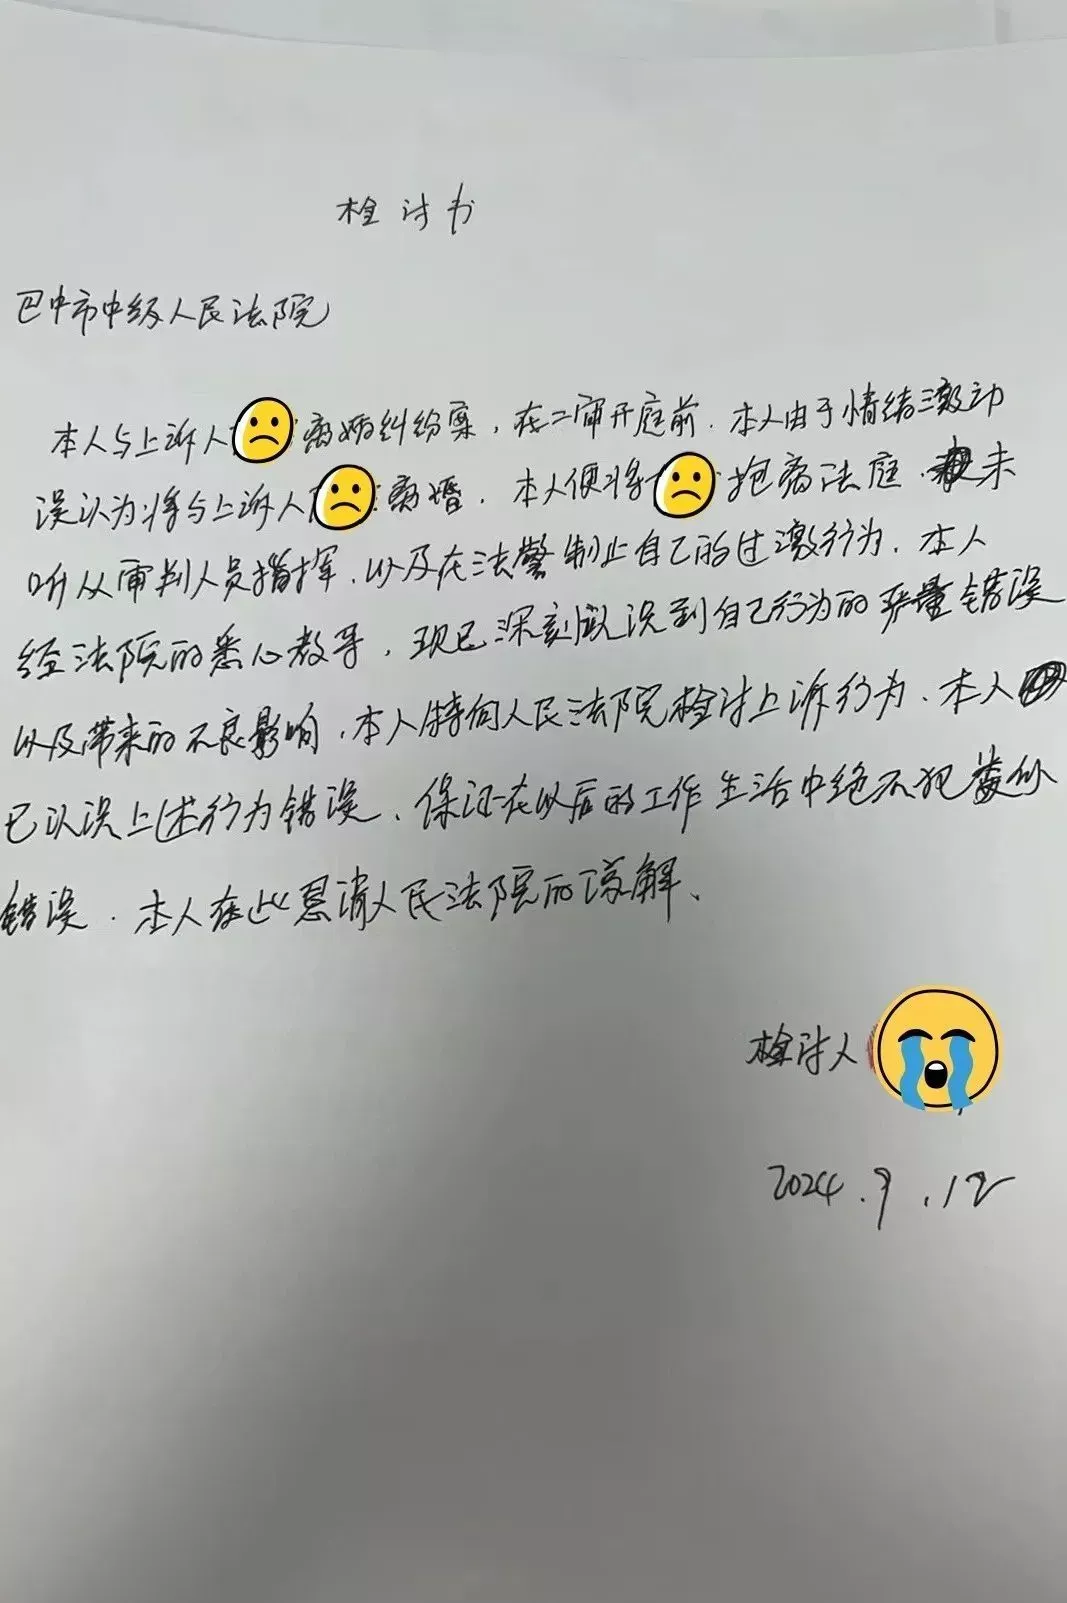 检讨书
巴中市中级人民法院
本人与上诉人离婚纠纷案，在二审开庭前．本人由于情绪激动
误认为将与上诉人离婚．本人便将抱离法庭．未
听从审判人员指挥．以及在法警制止自己的过激行为．本人
经法院的悉心教导，现已深刻认识到自己行为的严重错误
以及带来的不良影响．本人特向人民法院检讨上诉行为．本人
已认识上述行为错误、保证在以后的工作生活中绝不犯类似
错误．本人在此恳请人民法院的谅解、
检讨人
2024.9.12